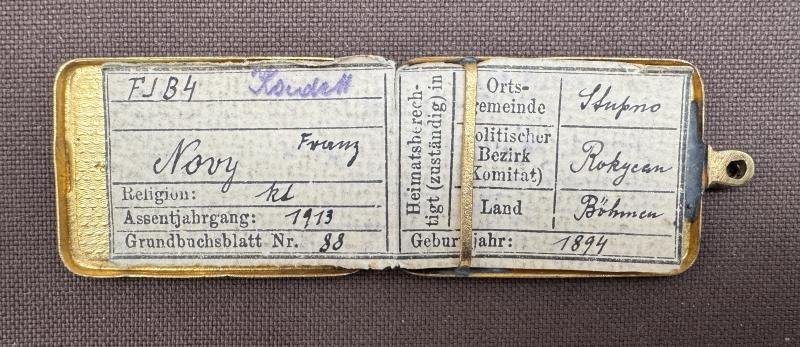 FJB4
Novy Franz
Religion: kt
Assentjahrgang: 1913
Grundbuchsblatt Nr. 88
Heimatsberech-
tigt (zuständig) in
Orts-
gemeinde Stupno
politischer
Bezirk
(Komitat) Rokycan
Land Böhmen
Geburtsjahr: 1894